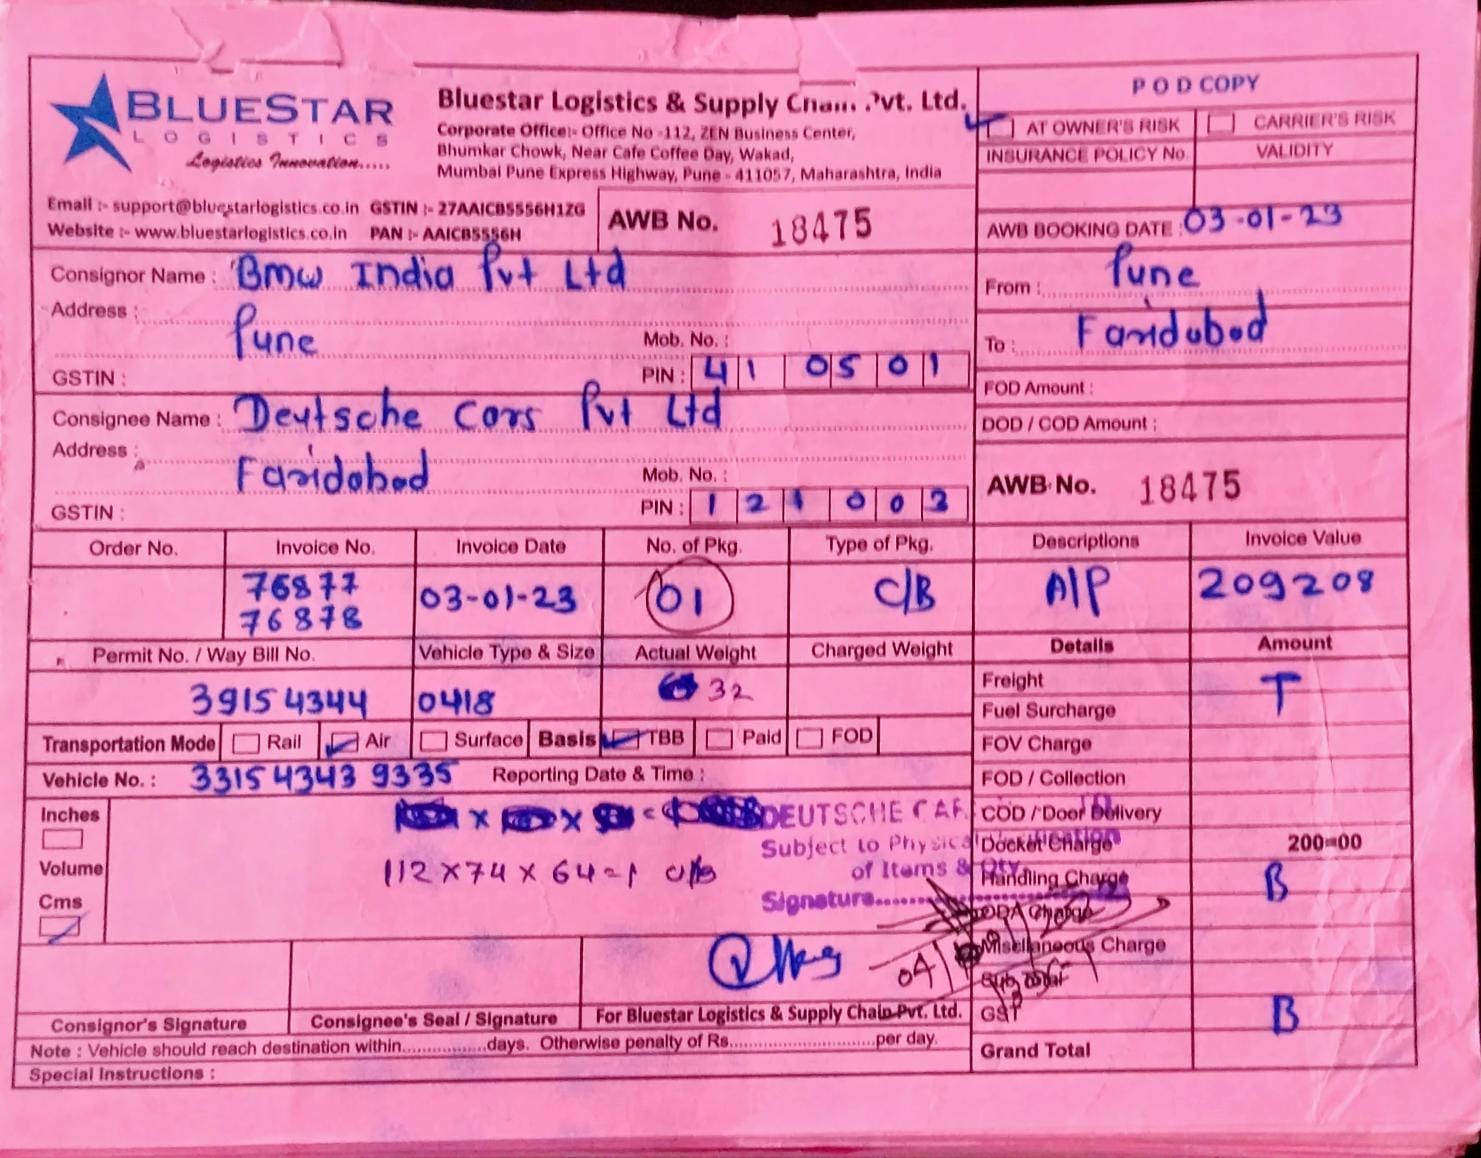 BLUESTAR
LOGISTICS
Logistics Innovation.....
Bluestar Logistics & Supply Chain Pvt. Ltd.
Corporate Office:- Office No -112, ZEN Business Center,
Bhumkar Chowk, Near Cafe Coffee Day, Wakad,
Mumbai Pune Express Highway, Pune - 411057, Maharashtra, India
POD COPY
AT OWNER'S RISK CARRIER'S RISK
INSURANCE POLICY No. VALIDITY
Email :- support@bluestarlogistics.co.in GSTIN :- 27AAICB5556H1ZG
Website :- www.bluestarlogistics.co.in PAN :- AAICB5556H
AWB No. 18475
AWB BOOKING DATE : 03-01-23
Consignor Name : BMW India Pvt Ltd
Address : Pune
Mob. No. :
GSTIN : PIN : 41 0501
From : Pune
To : Faridabad
FOD Amount :
DOD / COD Amount :
Consignee Name : Deutsche Cars Pvt Ltd
Address : Faridabad
Mob. No. :
GSTIN : PIN : 121003
AWB No. 18475
Order No. Invoice No. Invoice Date No. of Pkg. Type of Pkg. Descriptions Invoice Value
76877
76878 03-01-23 01 C/B A/P 209208
Permit No. / Way Bill No. Vehicle Type & Size Actual Weight Charged Weight Details Amount
3915 4344 0418 32
Freight T
Fuel Surcharge
Transportation Mode Rail Air Surface Basis TBB Paid FOD
FOV Charge
Vehicle No. : 3315 4343 9335 Reporting Date & Time :
FOD / Collection
Inches
Volume
Cms
112 x 74 x 64 = 1 c/b
DEUTSCHE CAR
Subject to Physical
of Items & Qty.
Signature
COD / Door Delivery
Docket Charge 200=00
Handling Charge B
ODA Charge
Miscellaneous Charge
Sub Total
GST B
Grand Total
04/
Consignor's Signature Consignee's Seal / Signature For Bluestar Logistics & Supply Chain Pvt. Ltd.
Note : Vehicle should reach destination within................days. Otherwise penalty of Rs.............................per day.
Special Instructions :